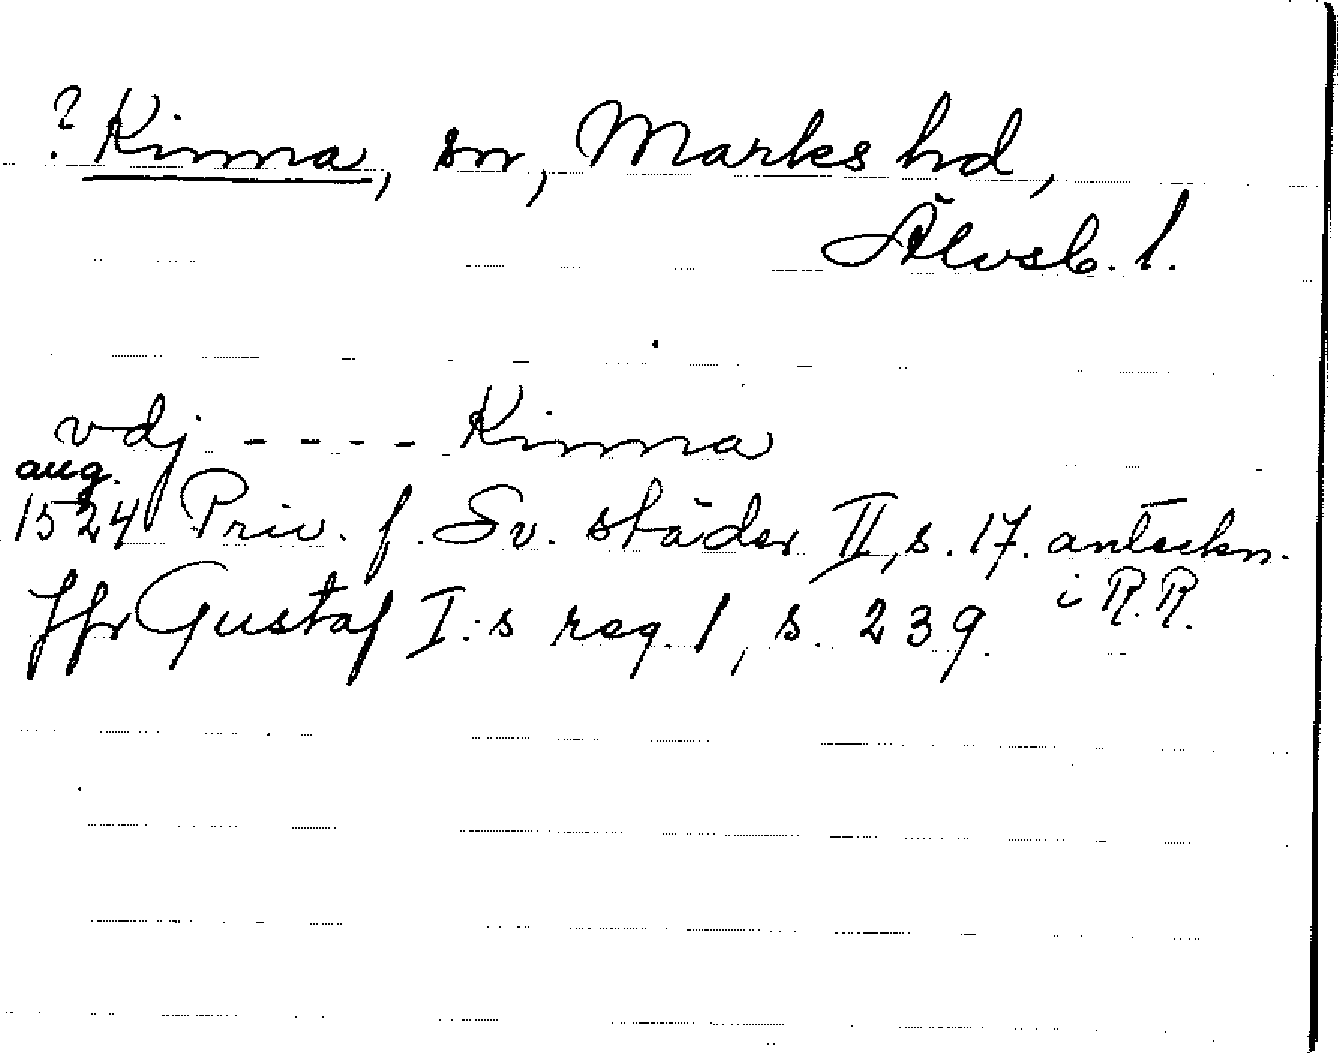 ? Kinna, sn, Marks hd,
Älvsb. l.
vdj - - - - Kinna
aug.
1524 Priv. f. Sv. städer II, s. 17. anteckn.
i R.R.
Jfr Gustaf I:s reg. 1, s. 239.